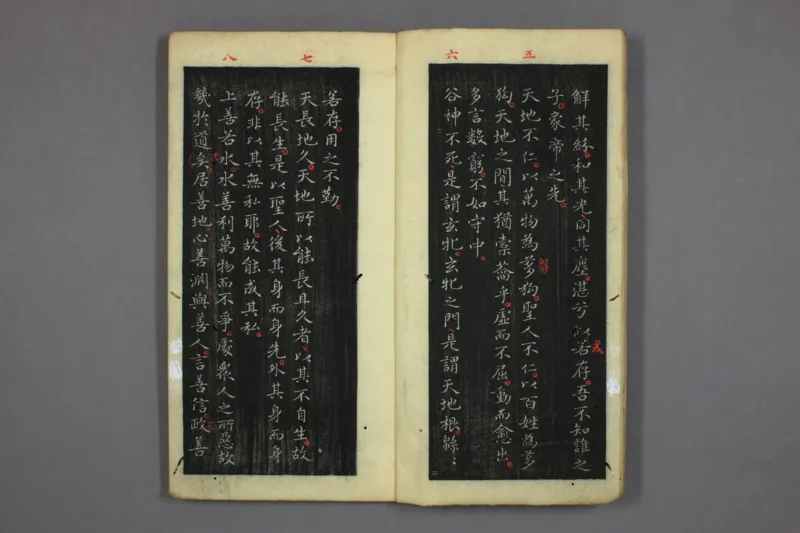 五
六
解其紛和其光同其塵湛兮似若存吾不知誰之
子象帝之先
天地不仁以萬物為芻狗聖人不仁以百姓為芻
狗天地之間其猶橐籥乎虛而不屈動而愈出
多言數窮不如守中
谷神不死是謂玄牝玄牝之門是謂天地根綿〻
七
八
若存用之不勤
天長地久天地所以能長且久者以其不自生故
能長生是以聖人後其身而身先外其身而身
存非以其無私耶故能成其私
上善若水水善利萬物而不爭處衆人之所惡故
幾於道矣居善地心善淵與善人言善信政善
或
二